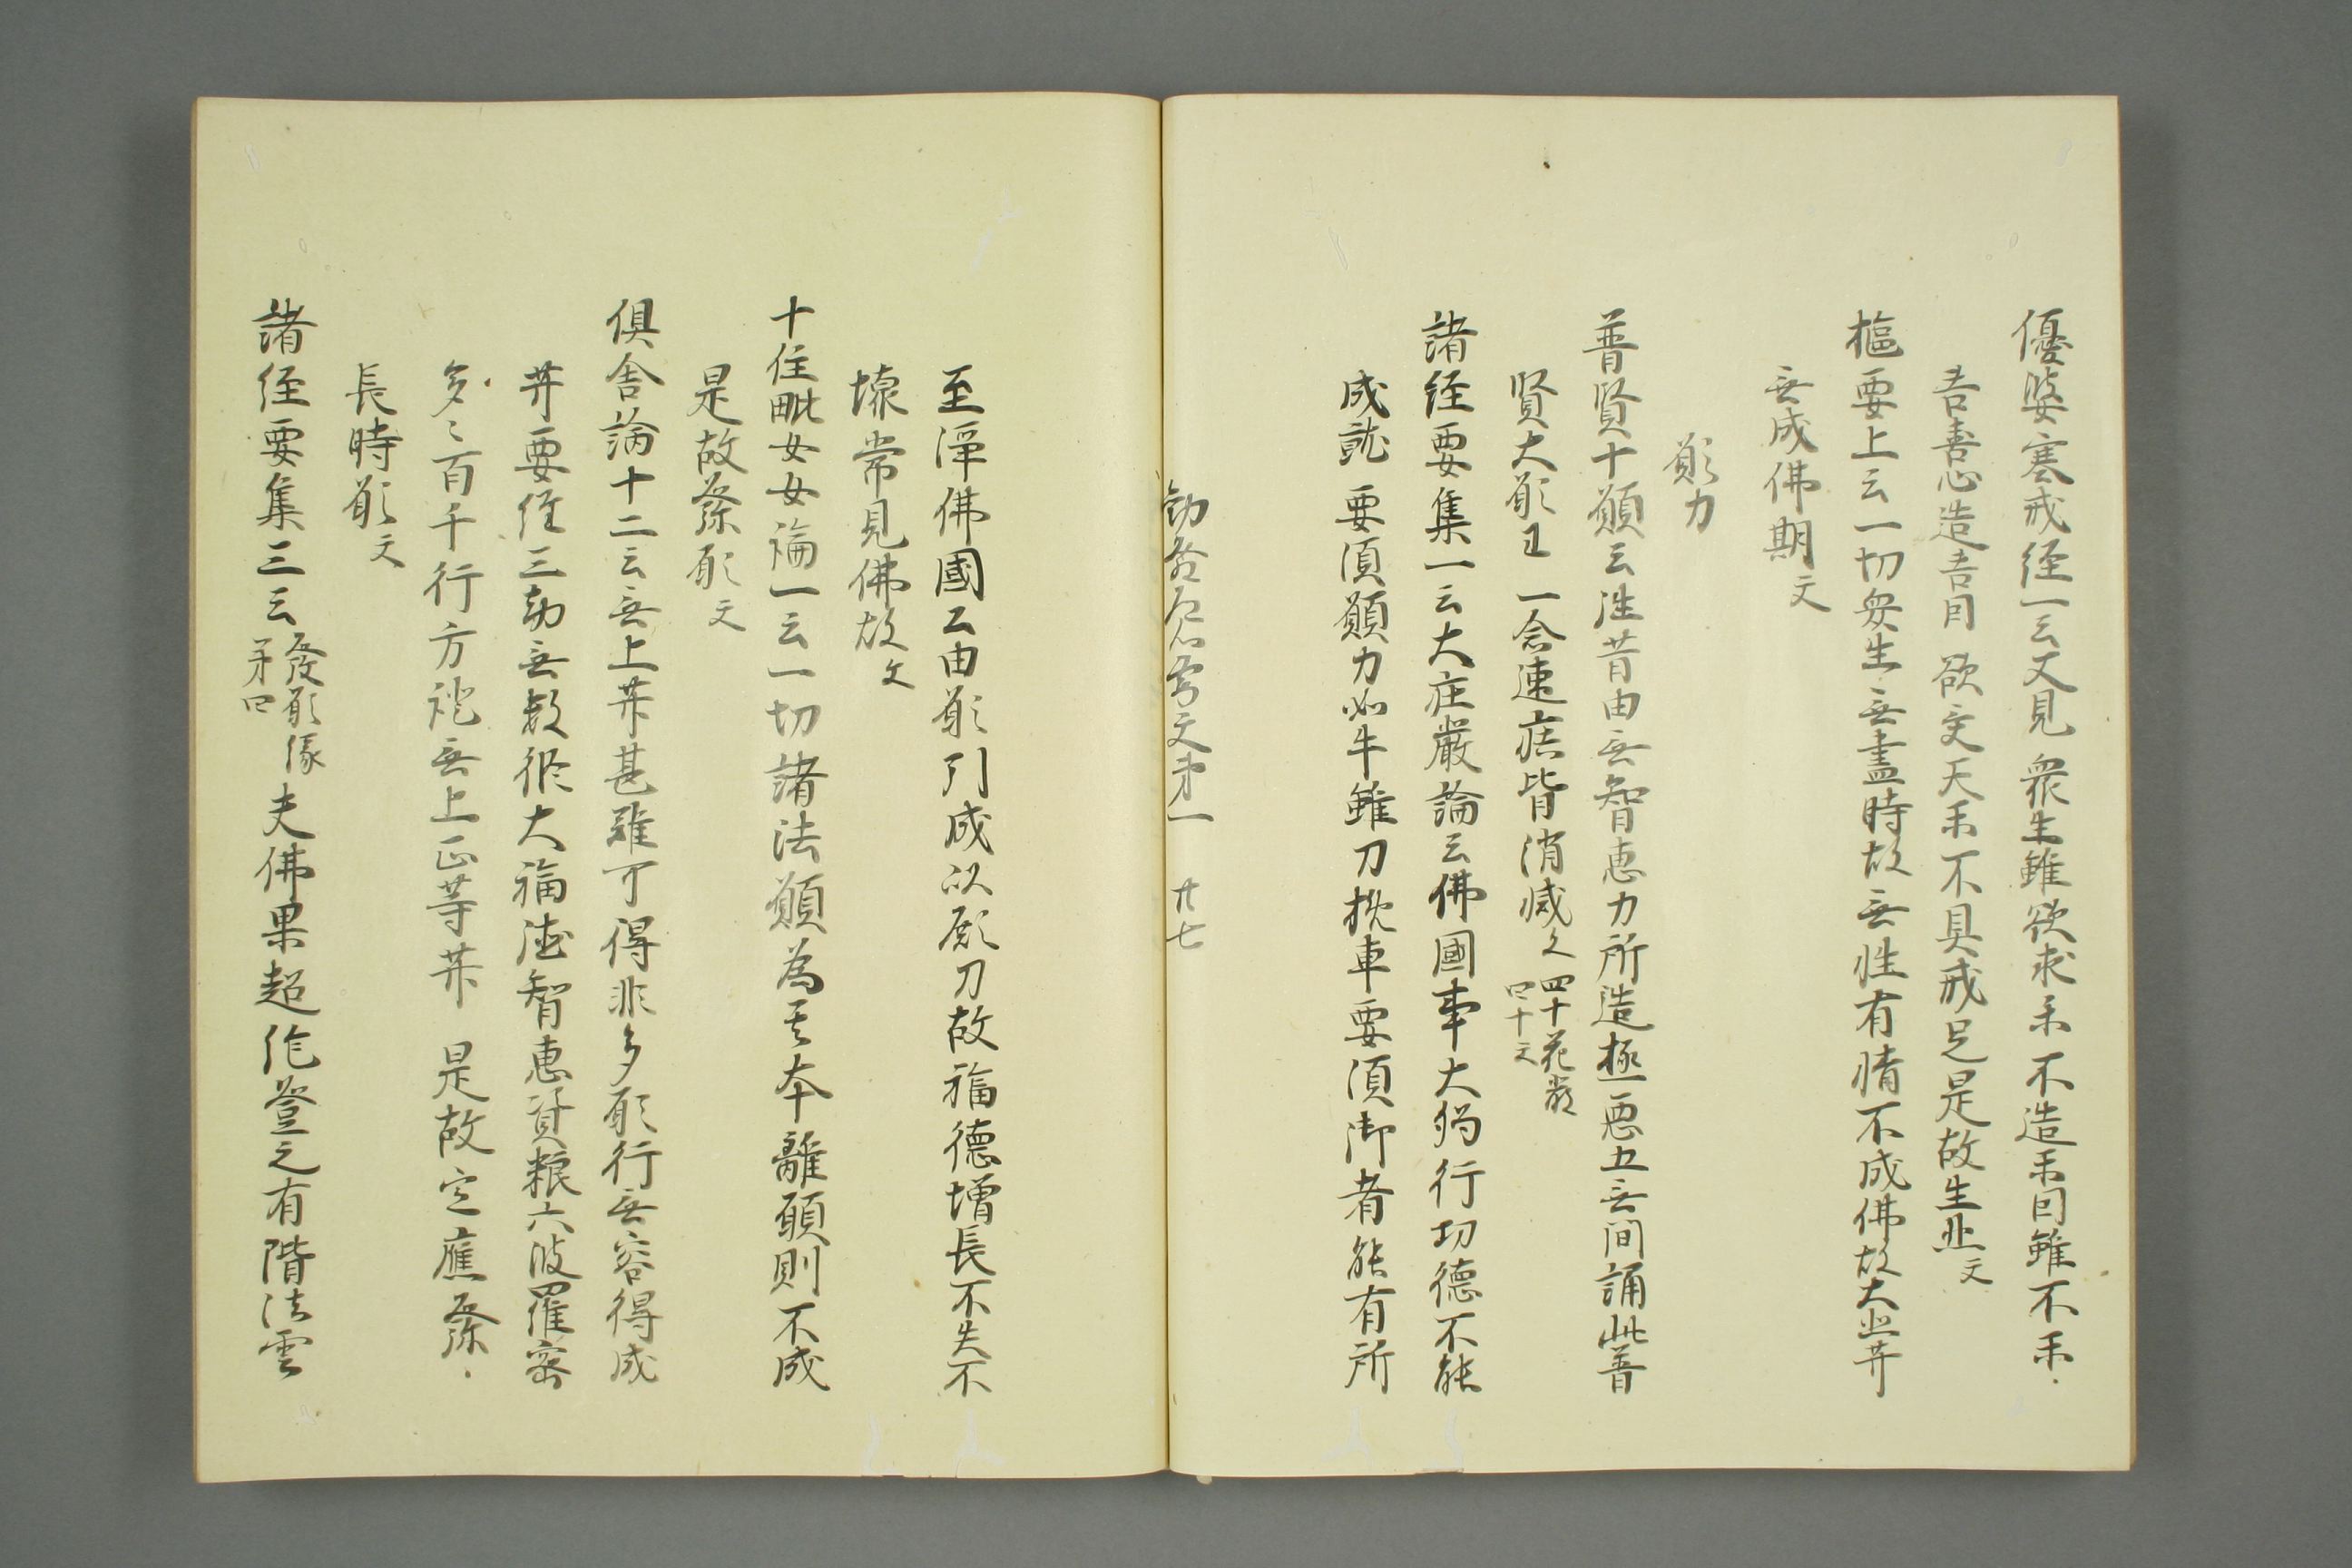 優婆塞戒経一云又見衆生雖欲求禾不造禾因雖不禾
吾善悪造吉因欲受天禾不具戒足是故生悲文
樞要上云一切衆生無盡時故無性有情不成佛故大悲菩
無成佛期文
願力
普賢十願云往昔由無智恵力所造極悪五無間誦此普
賢大願王一念速疾皆消滅文四十花厳
四十文
諸経要集一云大荘厳論云佛國事大獨行功徳不能
成就要須願力如牛雖力挽車要須御者能有所
文第一 廿七
至淨佛國云由願引成以願力故福徳増長不失不
壊常見佛故文
十住毗婆娑論一云一切諸法願為其本離願則不成
是故發願文
倶舎論十二云無上菩甚難可得非多願行無容得成
菩要経三劫無数修大福徳智恵資粮六波羅密
多多百千行方證無上正等菩是故定應發
長時願文
諸経要集三云發願縁
第四
夫佛果超絶登之有階法雲